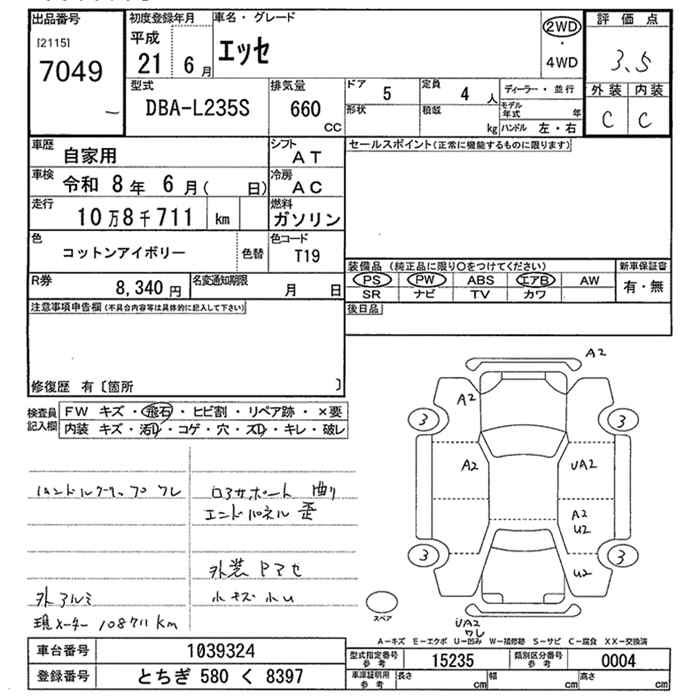 出品番号
[2115]
7049
初度登録年月
平成
21 6 月
車名・グレード
エッセ
2WD
・
4WD
評価点
3.5
外装 内装
C C
型式
DBA-L235S
排気量
660
CC
ドア
5
定員
4 人
形状
積載
kg
ディーラー・並行
モデル年式 年
ハンドル 左・右
車歴
自家用
シフト
AT
車検
令和 8 年 6 月( 日)
冷房
AC
走行
10万8千711 km
燃料
ガソリン
色
コットンアイボリー
色替
色コード
T19
R券
8,340 円
名変通知期限
月 日
セールスポイント(正常に機能するものに限ります)
装備品 (純正品に限り○をつけてください)
PS PW ABS エアB AW
SR ナビ TV カワ
新車保証書
有・無
後日品
注意事項申告欄(不具合内容等は具体的に記入して下さい)
修復歴 有〔箇所 〕
検査員記入欄
FW キズ・飛石・ヒビ割・リペア跡・×要
内装 キズ・汚れ・コゲ・穴・スレ・キレ・破レ
ハンドルクラップ ワレ
ロアサポート 曲り
エンドパネル 歪
外装 Pマセ
外アルミ
小キズ 小U
現メーター 108711 Km
A2
A2
3
3
A2
UA2
A2
U2
3
3
U2
スペア
UA2
ワレ
A-キズ E-エクボ U-凹み W-補修跡 S-サビ C-腐食 XX-交換済
車台番号
1039324
登録番号
とちぎ 580 く 8397
型式指定番号
参考
15235
類別区分番号
参考
0004
車庫証明用
参考
長さ cm
幅 cm
高さ cm